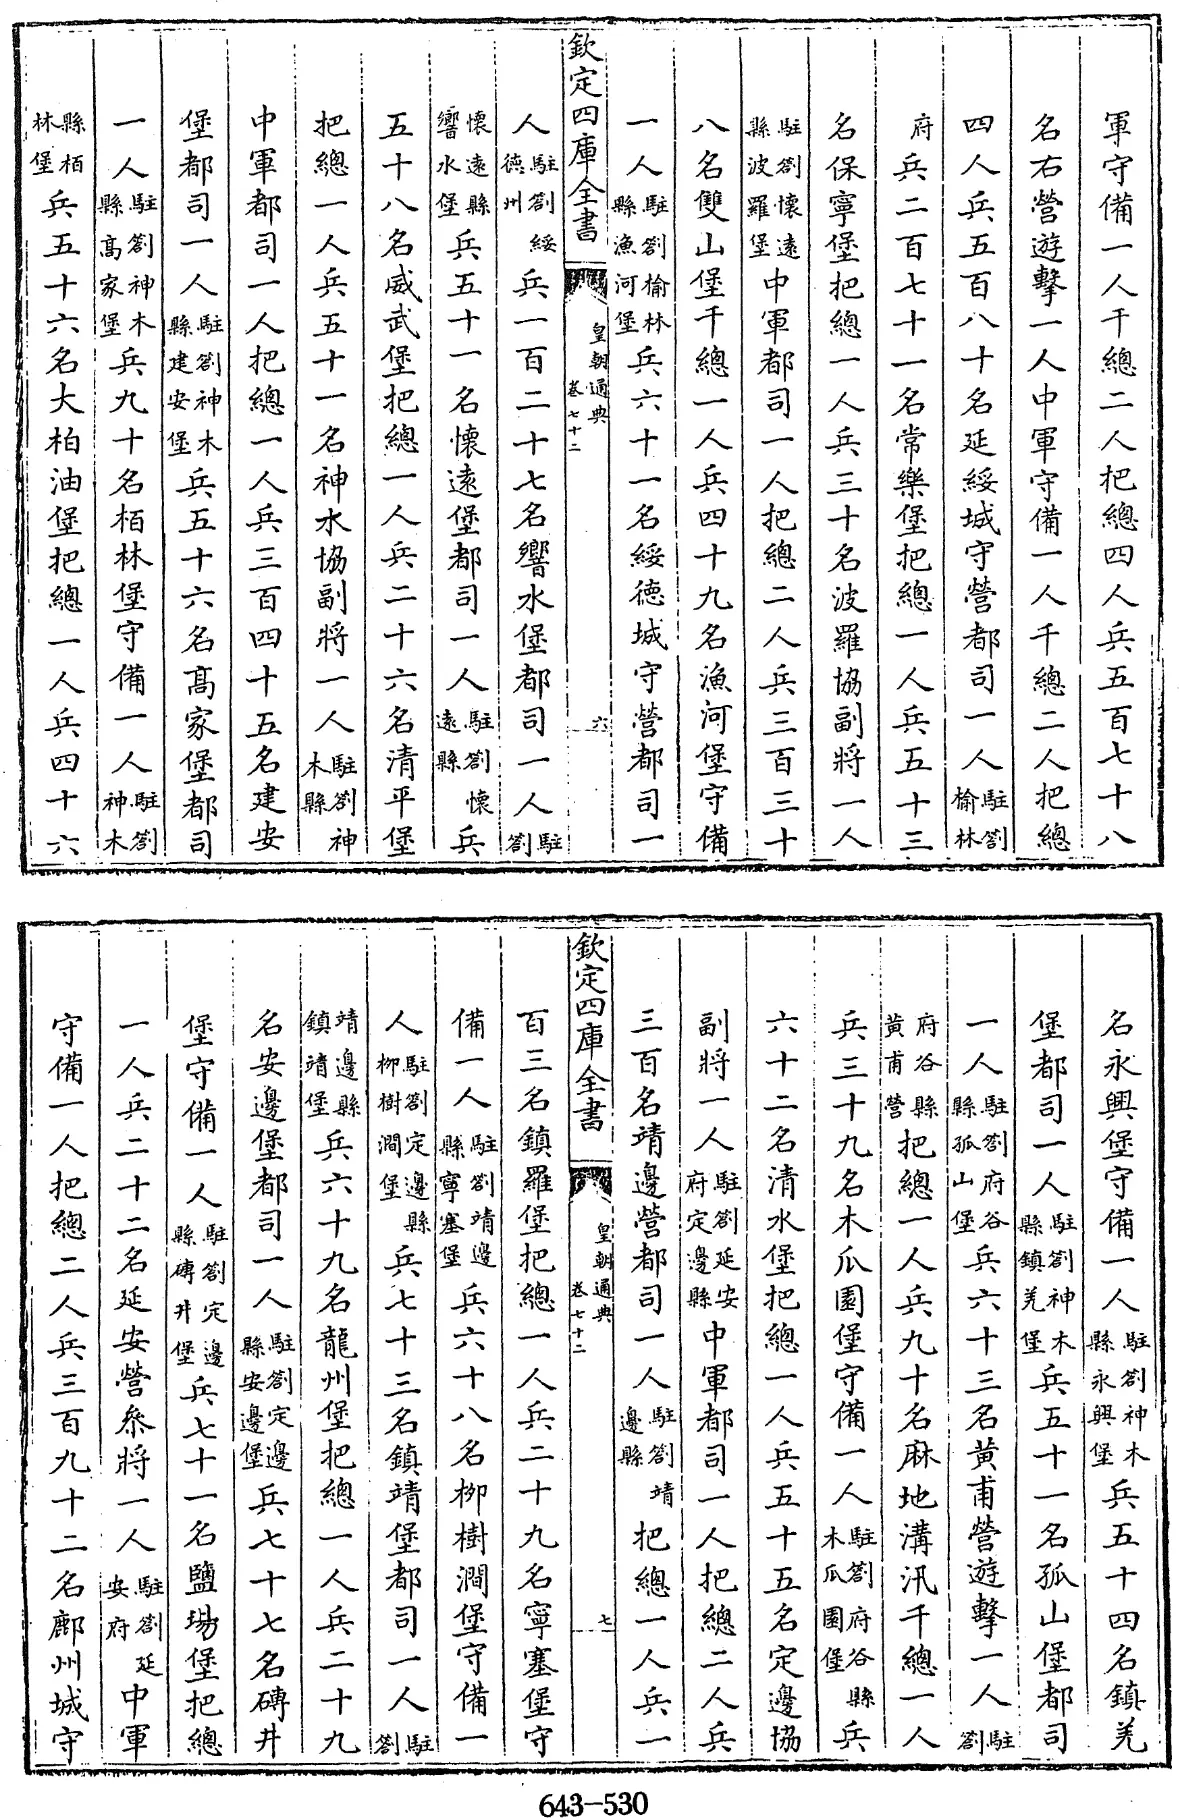 軍守備一人千總二人把總四人兵五百七十八
名右營遊擊一人中軍守備一人千總二人把總
四人兵五百八十名延綏城守營都司一人駐劄榆林
府兵二百七十一名常樂堡把總一人兵五十三
名保寧堡把總一人兵三十名波羅協副將一人
駐劄懷遠縣波羅堡中軍都司一人把總二人兵三百三十
八名雙山堡千總一人兵四十九名漁河堡守備
一人駐劄榆林縣漁河堡兵六十一名綏德城守營都司一
欽定四庫全書 皇朝通典卷七十二 六
人駐劄綏德州兵一百二十七名響水堡都司一人駐劄
懷遠縣響水堡兵五十一名懷遠堡都司一人駐劄懷遠縣兵
五十八名威武堡把總一人兵二十六名清平堡
把總一人兵五十一名神水協副將一人駐劄神木縣
中軍都司一人把總一人兵三百四十五名建安
堡都司一人駐劄神木縣建安堡兵五十六名高家堡都司
一人駐劄神木縣高家堡兵九十名栢林堡守備一人駐劄神木
縣栢林堡兵五十六名大柏油堡把總一人兵四十六
名永興堡守備一人駐劄神木縣永興堡兵五十四名鎮羌
堡都司一人駐劄神木縣鎮羌堡兵五十一名孤山堡都司
一人駐劄府谷縣孤山堡兵六十三名黄甫營遊擊一人駐劄
府谷縣黄甫營把總一人兵九十名麻地溝汛千總一人
兵三十九名木瓜園堡守備一人駐劄府谷縣木瓜園堡兵
六十二名清水堡把總一人兵五十五名定邊協
副將一人駐劄延安府定邊縣中軍都司一人把總二人兵
三百名靖邊營都司一人駐劄靖邊縣把總一人兵一
欽定四庫全書 皇朝通典卷七十二 七
百三名鎮羅堡把總一人兵二十九名寧塞堡守
備一人駐劄靖邊縣寧塞堡兵六十八名柳樹澗堡守備一
人駐劄定邊縣柳樹澗堡兵七十三名鎮靖堡都司一人駐劄
靖邊縣鎮靖堡兵六十九名龍州堡把總一人兵二十九
名安邊堡都司一人駐劄定邊縣安邊堡兵七十七名磚井
堡守備一人駐劄定邊縣磚井堡兵七十一名鹽場堡把總
一人兵二十二名延安營叅將一人駐劄延安府中軍
守備一人把總二人兵三百九十二名鄜州城守
643-530